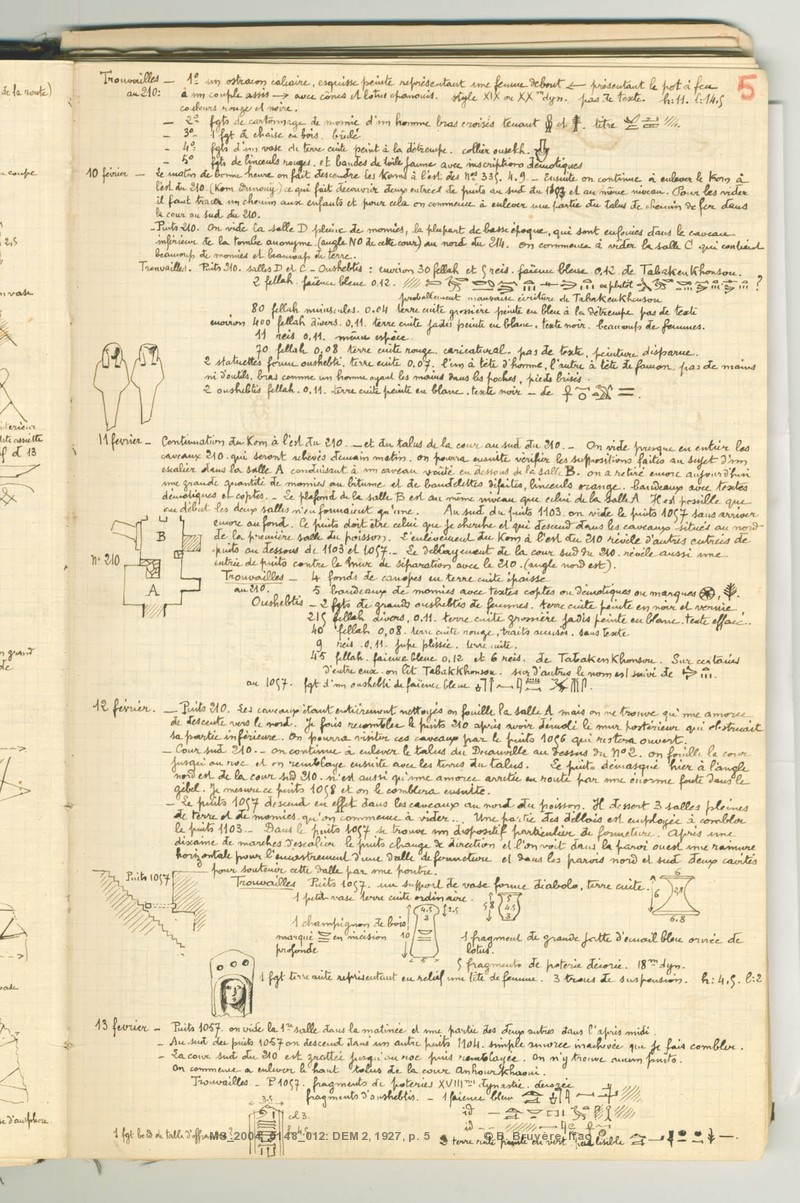 5
Trouvailles — 1° un ostracon calcaire, esquisse peinte représentant une femme debout ← présentant le pot à feu
au 210: à un couple assis → avec cônes et lotus épanouis. style XIX ou XXme dyn. pas de texte. h: 11. l: 14.5
couleurs rouge et noire.
— 2° fgts de cartonnage de momie d'un homme bras croisés tenant et titre
— 3° 1 fgt de chaise en bois. brûlé
— 4° fgts d'un vase de terre cuite peint à la détrempe. collier ousekh.
— 5° fgts de linceuls rouges. et bandes de toile jaune avec inscriptions démotiques
10 février — Le matin de bonne heure on fait descendre les Koms à l'est des Nos 335. 4. 9. — ensuite on continue à enlever le Kom à
l'est du 210. (Kom Drunoy) ce qui fait découvrir deux entrées de puits au sud du et au même niveau. Pour les vider
il faut tracer un chemin aux enfants et pour cela on commence à enlever une partie du talus de chemin de fer dans
la cour au sud du 210.
— Puits 210. On vide la salle D pleine de momies, la plupart de basse époque, qui sont enfouies dans le caveau
inférieur de la tombe anonyme (angle NO de cette cour) au nord du 214. On commence à vider la salle C qui contient
beaucoup de momies et beaucoup de terre.
Trouvailles. Puits 210. salles D et C — Oushebtis : environ 30 fellah et 5 reis. faïence bleue 0,12 de Tabakenkhonsou.
2 fellah. faïence bleue 0.12. ou plutôt ?
probablement mauvaise écriture de Tabakenkhonsou
80 fellah minuscules. 0.04 terre cuite grossière peinte en bleu à la détrempe pas de texte
environ 400 fellah divers. 0,11. terre cuite jadis peinte en blanc. texte noir. beaucoup de femmes.
11 reis 0,11. même espèce.
70 fellah 0,08 terre cuite rouge. caricatural. pas de texte, peinture disparue.
2 statuettes forme oushebti, terre cuite 0.07. l'un à tête d'homme, l'autre à tête de faucon. pas de mains
ni d'outils, bras comme un homme ayant les mains dans les poches, pieds brisés.
2 oushebtis fellah. 0.11. terre cuite peinte en blanc. texte noir — de
11 février — Continuation du Kom à l'est du 210. — et du talus de la cour au sud du 210. — On vide presque en entier les
caveaux 210 qui seront achevés demain matin. on pourra ensuite vérifier les suppositions faites au sujet d'un
escalier dans la salle A conduisant à un caveau voûté en dessous de la salle B. on a retiré encore aujourd'hui
une grande quantité de momies au bitume et de bandelettes défaites, linceuls orange. bandeaux avec textes
démotiques et coptes. — Le plafond de la salle B est au même niveau que celui de la salle A. Il est possible que
au début les deux salles n'en formaient qu'une. Au sud du puits 1103. on vide le puits 1057 sans arriver
encore au fond. Ce puits doit être celui que je cherche et qui descend dans les caveaux situés au nord
de la première salle du poisson. L'enlèvement du Kom à l'est du 210 révèle d'autres entrées de
puits au dessous de 1103 et 1057. — Le déblayement de la cour sud du 210. révèle aussi une
entrée de puits contre le mur de séparation avec le 210. (angle nord est).
B
N° 210
A
Trouvailles — 4 fonds de canopes en terre cuite épaisse
au 210. 5 bandeaux de momies avec textes coptes ou démotiques ou marques
Oushebtis — 2 fgts de grand oushebtis de femmes. terre cuite peinte en noir et vernie.
215 fellah divers, 0.11. terre cuite grossière jadis peinte en blanc. texte effacé.
40 fellah 0,08. terre cuite rouge, traits accusés. sans texte
9 reis. 0.11. jupe plissée. terre cuite.
45 fellah. faïence bleue 0,12 et 6 reis. de Tabakenkhonsou. Sur certains
d'entre eux on lit Tabakkhonsou. sur d'autres le nom est suivi de
au 1057. fgt d'un oushebti de faïence bleue
12 février. — Puits 210. Les caveaux étant entièrement nettoyés on fouille la salle A mais on ne trouve qu'une amorce
de descente vers le nord. Je fais recombler le puits 210 après avoir démoli le mur postérieur qui obstruait
sa partie inférieure. On pourra visiter ces caveaux par le puits 1096 qui restera ouvert.
— Cour sud 210. — on continue à enlever le talus du Decauville au dessus du N° 2. on fouille la cour
jusqu'au roc et on remblaye ensuite avec les terres du talus. Le puits démasqué hier à l'angle
nord est de la cour sud 210. n'est aussi qu'une amorce arrêtée en route par une énorme faute dans le
gébel. Je mesure ce puits 1058 et on le comblera ensuite.
— Le puits 1057 descend en effet dans les caveaux au nord du poisson. Il dessert 3 salles pleines
de terre et de momies qu'on commence à vider. Une partie des déblais est employée à combler
le puits 1103 — Dans le puits 1057 se trouve un dispositif particulier de fermeture. Après une
dixaine de marches d'escalier le puits change de direction et l'on voit dans la paroi ouest une rainure
horizontale pour l'encastrement d'une dalle de fermeture et dans les parois nord et sud deux cavités
pour soutenir cette dalle par une poutre.
Puits 1057
Trouvailles Puits 1057. un support de vase forme diabolo, terre cuite. 6 2,8 6.8
1 petit vase terre cuite ordinaire. 5,8 4.5 3
1 champignon de bois 4.5 3 2,5
marqué en incision 10
profonde 6
1 fragment de grande jatte d'émail bleu ornée de
lotus.
5 fragments de poterie décorée. 18me dyn.
1 fgt terre cuite représentant en relief une tête de femme. 3 trous de suspension. h: 4.5. l: 2
13 février — Puits 1057. on vide la 1re salle dans la matinée et une partie des deux autres dans l'après midi.
— Au sud du puits 1057 on descend dans un autre puits 1104. simple amorce inachevée que je fais combler.
— La cour sud du 210 est grattée jusqu'au roc puis remblayée. On n'y trouve aucun puits.
On commence à enlever le haut talus de la cour Anhourkhaoui.
Trouvailles — P 1057. fragments de poteries XVIIIme dynastie. décorée
fragments d'oushebtis. — 1 faïence bleu
id —
id —
3.5
1 fgt bord de table d'offrandes
terre cuite peinte en vert
MS_2004_0148_012: DEM 2, 1927, p. 5 © B. Bruyère, Ifao